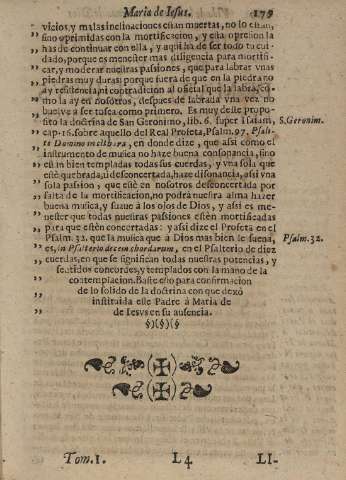 Maria de Iesus. 179
„ vicios, y malas inclinaciones estàn muertas, no lo estàn,
„ sino oprimidas con la mortificacion, y esta opresion la
„ has de continuar con ella, y aqui ha de ser todo tu cui-
„ dado, porque es menester mas diligencia para mortifi-
„ car, y moderar nuestras pasiones, que para labrar vnas
„ piedras muy duras: porque fuera de que en la piedra no
„ ay resistencia, ni contradicion al oficial que la labra, co-
„ mo la ay en nosotros, despues de labrada vna vez no
„ buelve a ser tosca como primero. Es muy deste propo-
„ sito la doctrina de San Geronimo, lib. 6. super Isaiam, S.Geronim.
„ cap. 16. sobre aquello del Real Profeta, Psalm. 97. Psali-
„ te Domino in cithara, en donde dize, que assi como el
„ instrumento de musica no haze buena consonancia, sino
„ estàn bien templadas todas sus cuerdas, y vna sola que
„ estè quebrada, ù desconcertada, haze disonancia, assi vna
„ sola passion, que estè en nosotros desconcertada por
„ falta de la mortificacion, no podrà nuestra alma hazer
„ buena musica, y suave à los ojos de Dios, y assi es me-
„ nester que todas nuestras pasiones estèn mortificadas
„ para que estèn concertadas: y assi dize el Profeta en el
„ Psalm. 32. que la musica que à Dios mas bien le suena, Psalm. 32.
„ es, in Psalterio decem chordarum, en el Psalterio de diez
„ cuerdas, en que se significan todas nuestras potencias, y
„ sentidos concordes, y templados con la mano de la
„ contemplacion. Baste esto para confirmacion
„ de lo solido de la doctrina con que dexò
„ instituida este Padre à Maria de
„ de Iesvs en su ausencia.
§)(§)(§
Tom. I. L4 LI-